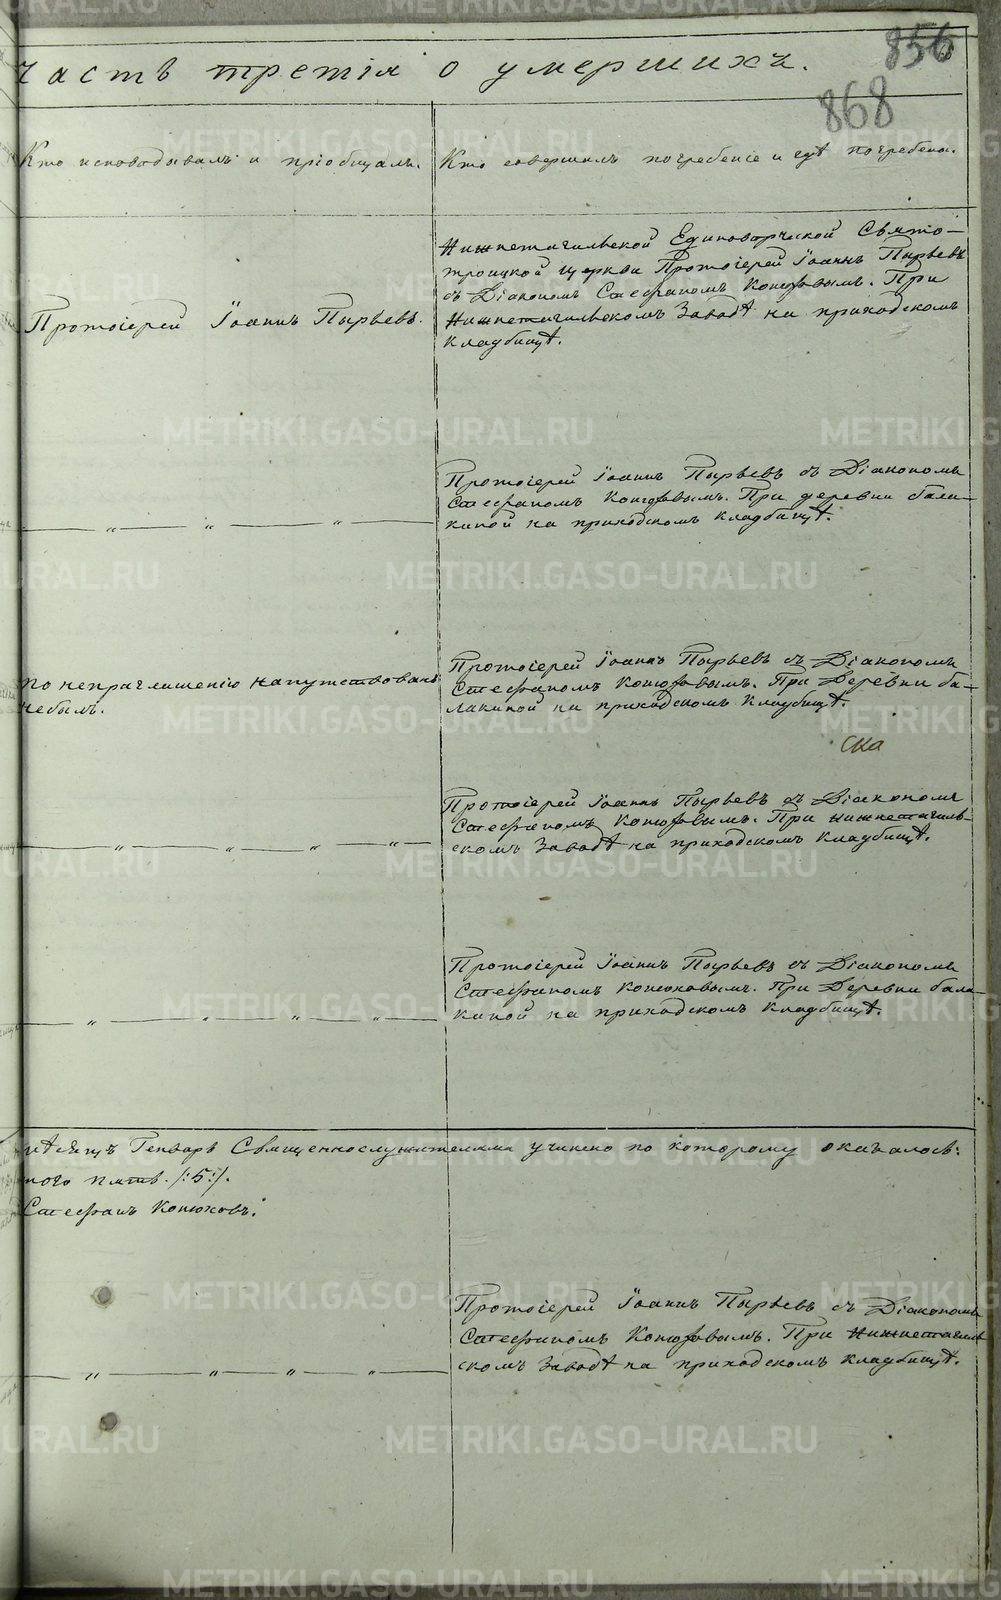 856
Часть третія о умершихъ.
868
Кто исповѣдывалъ и пріобщалъ.
Кто совершилъ погребеніе и гдѣ погребены.
Протоіерей Іоаннъ Пырьевъ.
Нижнетагильской Единовѣрческой Свято-
троицкой церкви Протоіерей Іоаннъ Пырьевъ
съ Діакономъ Стефаномъ Конюховымъ. При
Нижнетагильскомъ Заводѣ на приходскомъ
кладбищѣ.
— „ — „ — „ —
Протоіерей Іоаннъ Пырьевъ съ Діакономъ
Стефаномъ Конюховымъ. При деревни бала-
киной на приходскомъ кладбищѣ.
по неприглашенію напутствованъ
небылъ.
Протоіерей Іоаннъ Пырьевъ съ Діакономъ
Стефаномъ Конюховымъ. При Деревни ба-
лакиной на приходскомъ кладбищѣ.
ска
— „ — „ — „ — „ —
Протоіерей Іоаннъ Пырьевъ съ Діакономъ
Стефаномъ Конюховымъ. При нижнетагиль-
скомъ Заводѣ на приходскомъ кладбищѣ.
— „ — „ — „ — „ —
Протоіерей Іоаннъ Пырьевъ съ Діакономъ
Стефаномъ Конюховымъ. При Деревни бала-
киной на приходскомъ кладбищѣ.
мѣсяцъ Генварь Священнослужителями учинено по которому оказалось:
ного пять. /:5:/.
Стефанъ Конюховъ.
— „ — „ — „ — „ —
Протоіерей Іоаннъ Пырьевъ съ Діакономъ
Стефаномъ Конюховымъ. При Нижнетагиль
скомъ Заводѣ на приходскомъ кладбищѣ.
METRIKI.GASO-URAL.RU